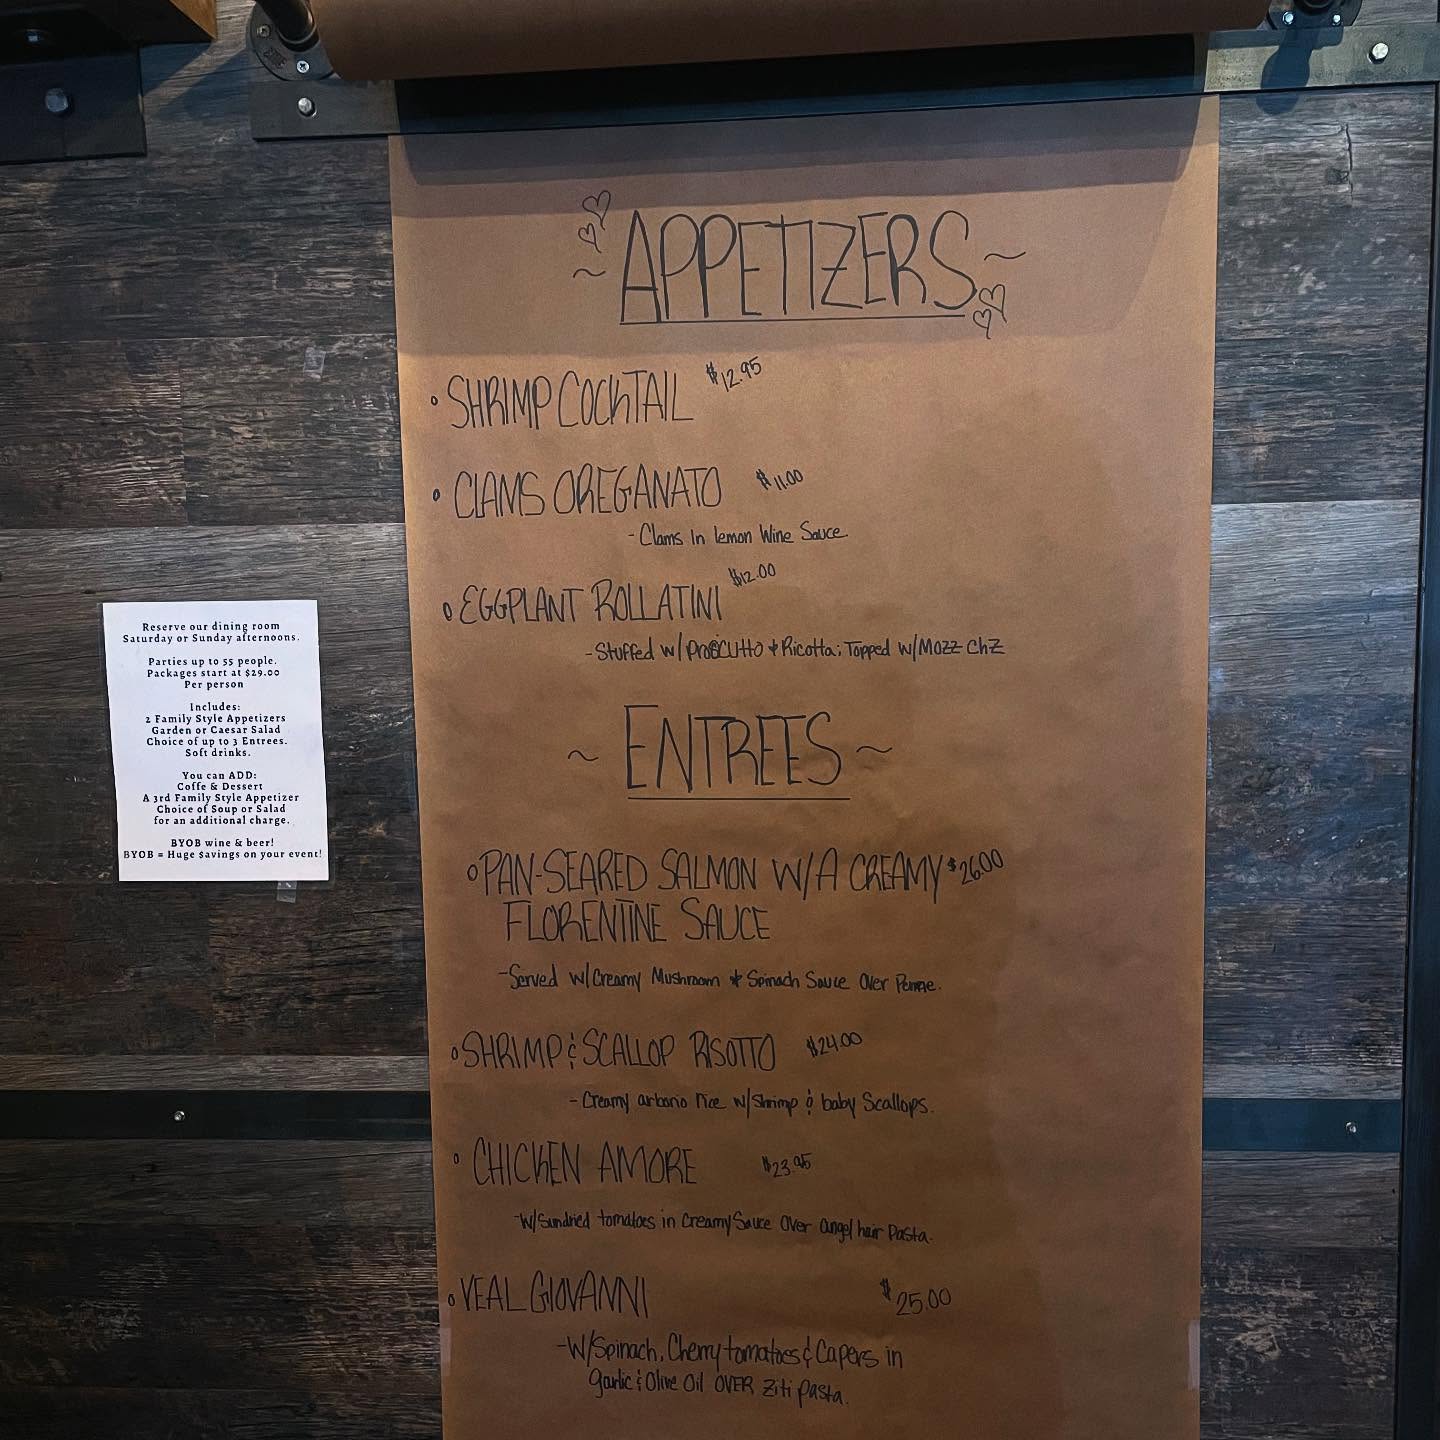 APPETIZERS
SHRIMP COCKTAIL $12.95
CLAMS OREGANATO $11.00
- Clams in lemon Wine Sauce.
EGGPLANT ROLLATINI $12.00
- Stuffed w/ Proscutto & Ricotta; Topped w/ Mozz ChZ
~ ENTREES ~
PAN-SEARED SALMON W/A CREAMY $26.00
FLORENTINE SAUCE
- Served w/ Creamy Mushroom & Spinach Sauce Over Penne.
SHRIMP & SCALLOP RISOTTO $24.00
- Creamy arborio rice w/ Shrimp & baby Scallops.
CHICKEN AMORE $23.95
- W/ Sundried tomatoes in Creamy Sauce Over angel hair Pasta.
VEAL GIOVANNI $25.00
- W/ Spinach, Cherry tomatoes & Capers in
Garlic & Olive Oil OVER Ziti Pasta.
Reserve our dining room
Saturday or Sunday afternoons.
Parties up to 55 people.
Packages start at $29.00
Per person
Includes:
2 Family Style Appetizers
Garden or Caesar Salad
Choice of up to 3 Entrees.
Soft drinks.
You can ADD:
Coffe & Dessert
A 3rd Family Style Appetizer
Choice of Soup or Salad
for an additional charge.
BYOB wine & beer!
BYOB = Huge $avings on your event!